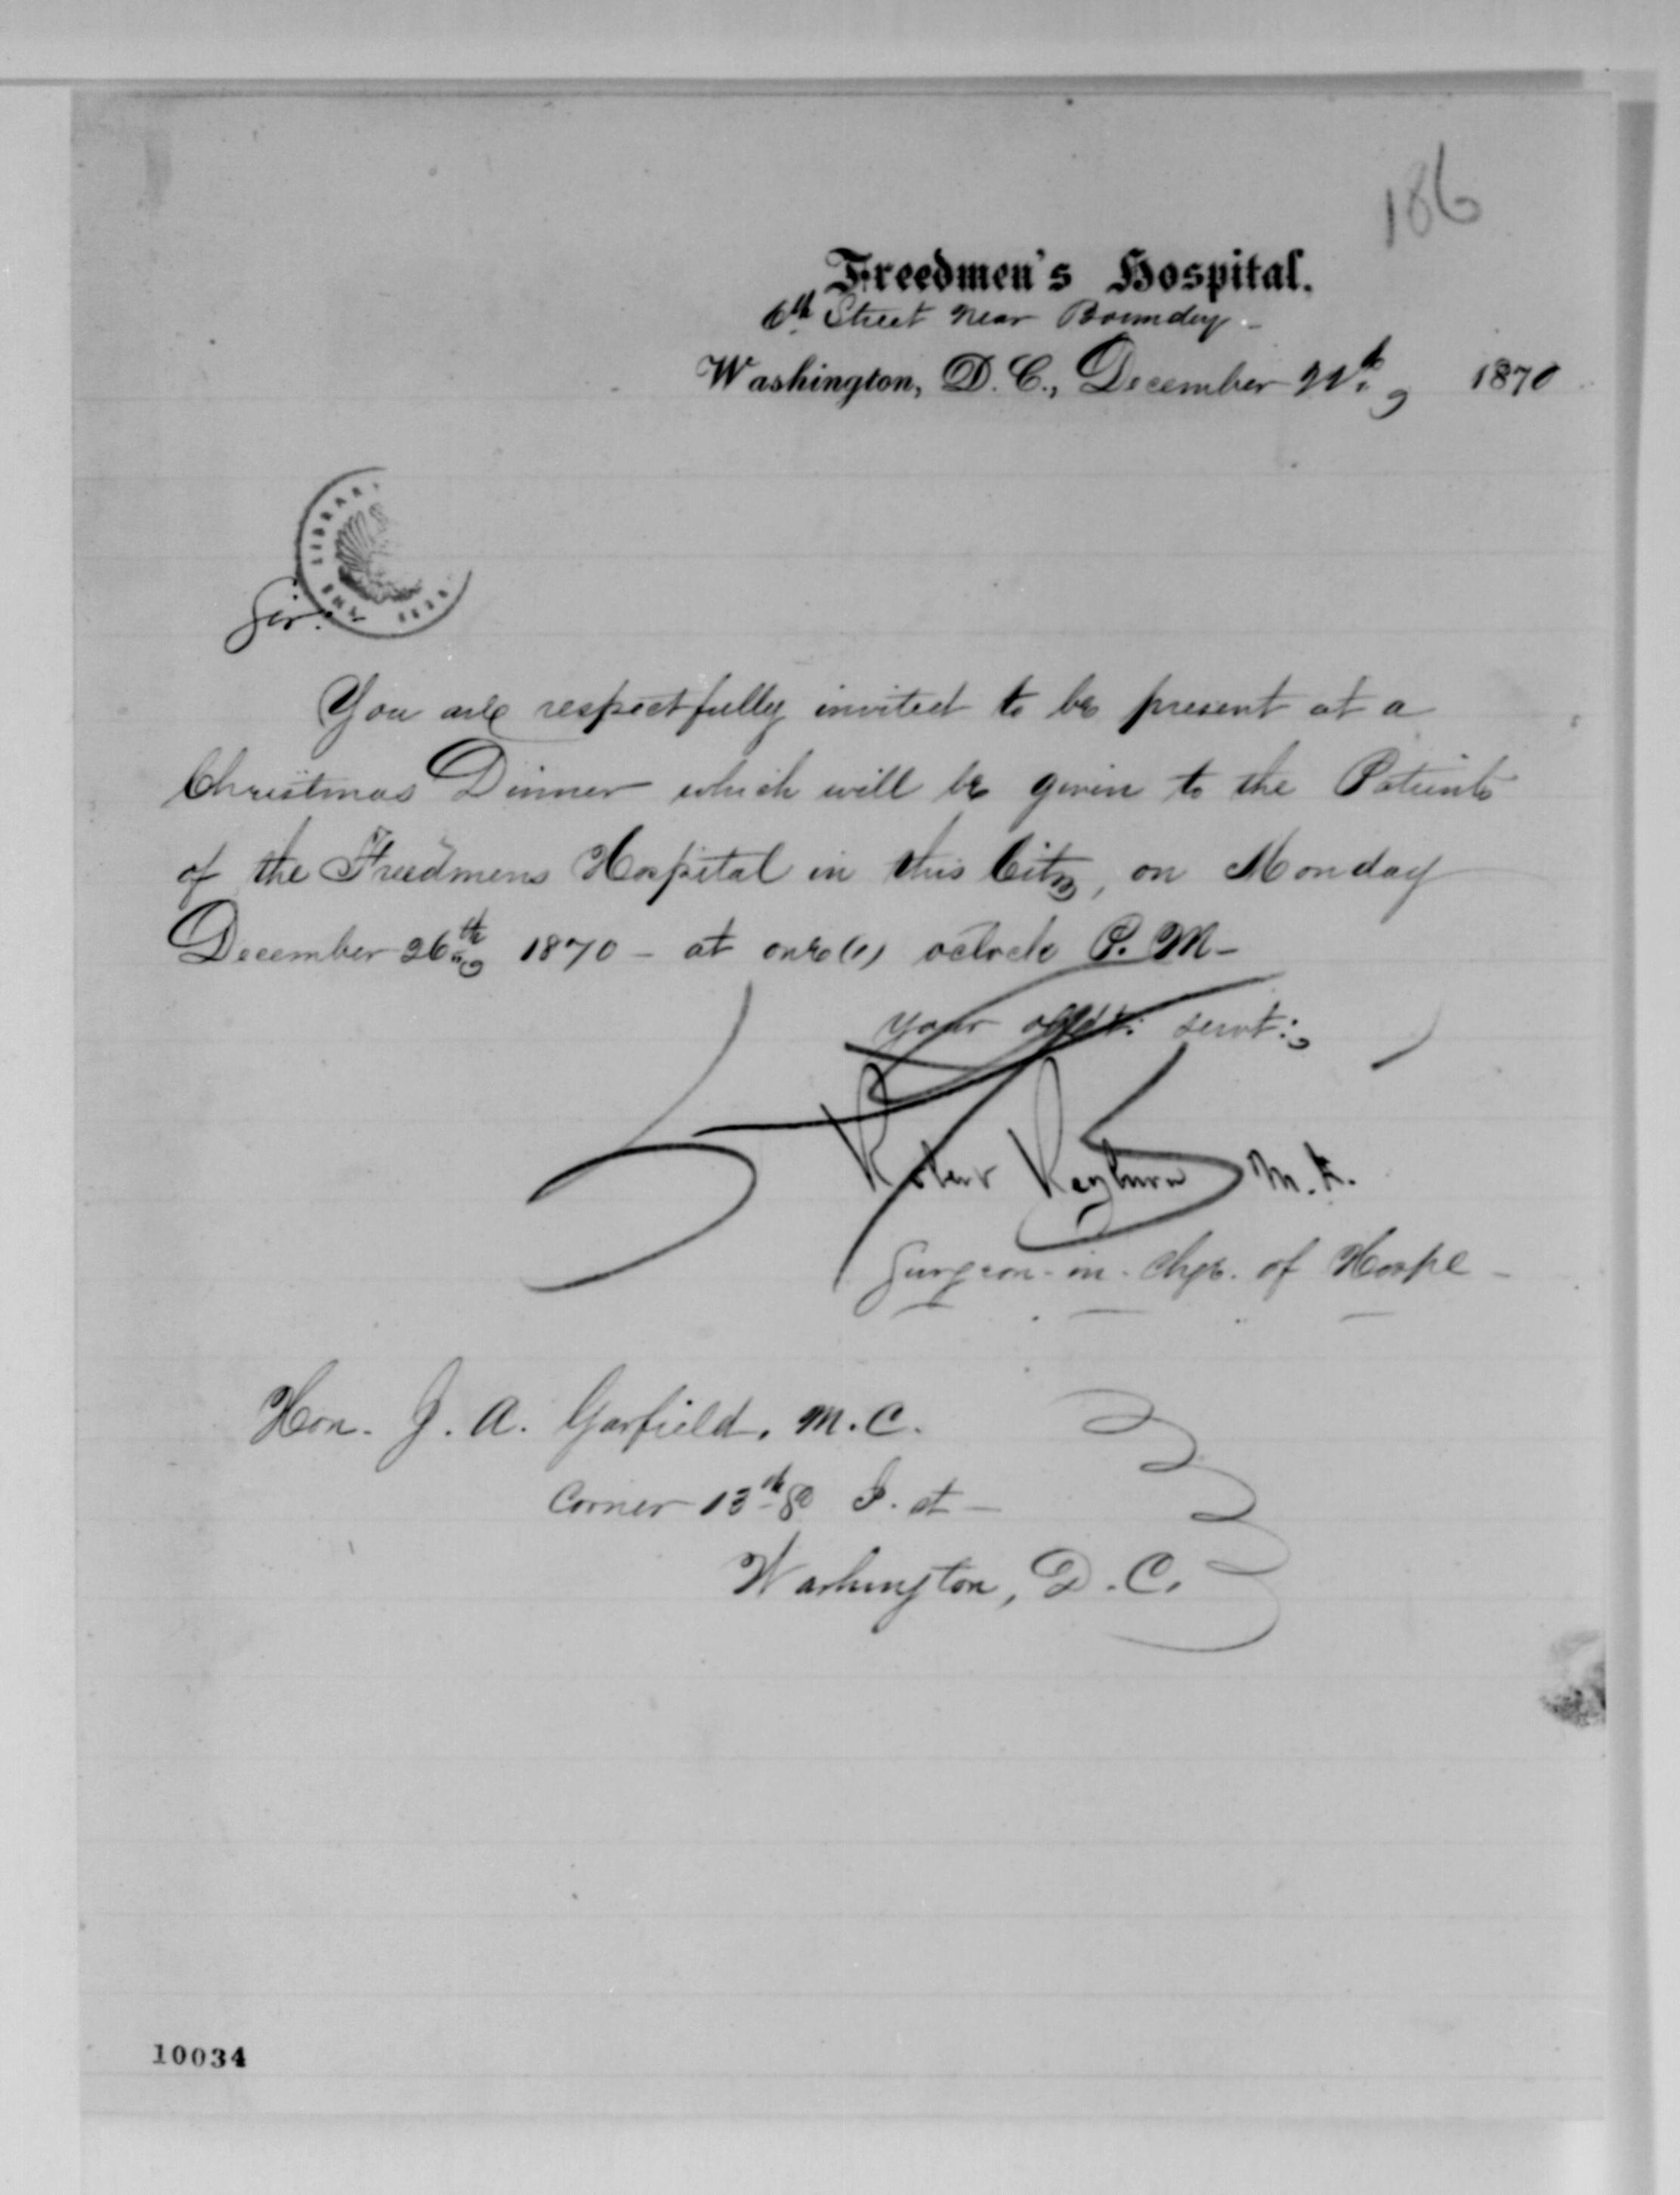 186
Freedmen's Hospital.
6th Street near Boundry -
Washington, D. C., December 22d, 1870
LIBRAR
THE
Sir:
You are respectfully invited to be present at a
Christmas Dinner which will be given to the Patients
of the Freedmens Hospital in this City, on Monday
December 26th, 1870 - at one (1) oclock P. M -
your obdt: servt:,
Robert Reyburn M. D.
Surgeon-in-chge. of Hospl -
Hon. J. A. Garfield, M. C.
Corner 13th & I. st -
Washington, D. C.
10034